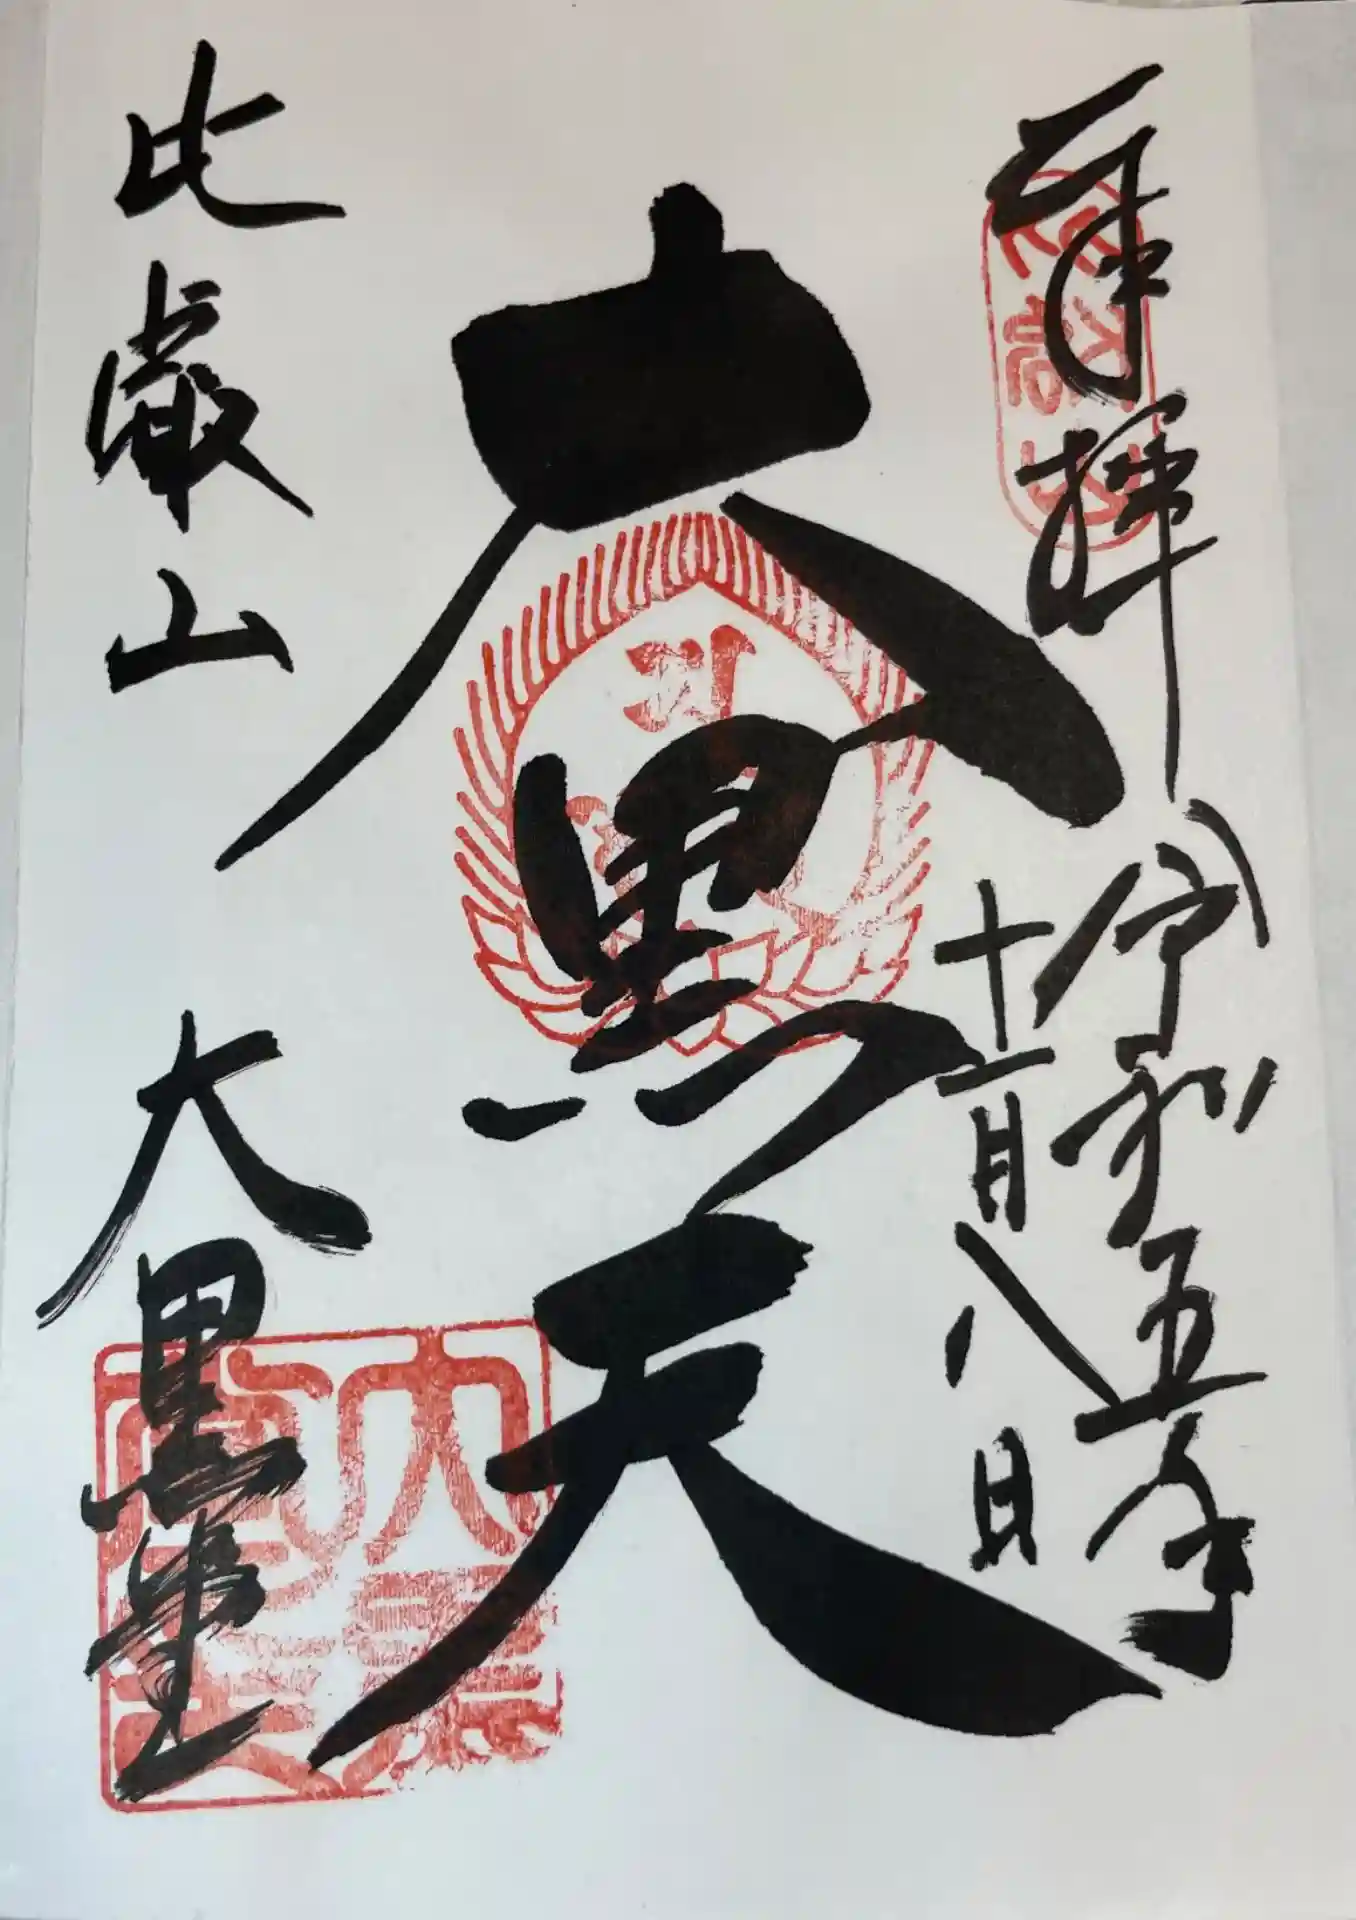 奉拝 令和五年
十二月八日
大黒天
比叡山 大黒堂